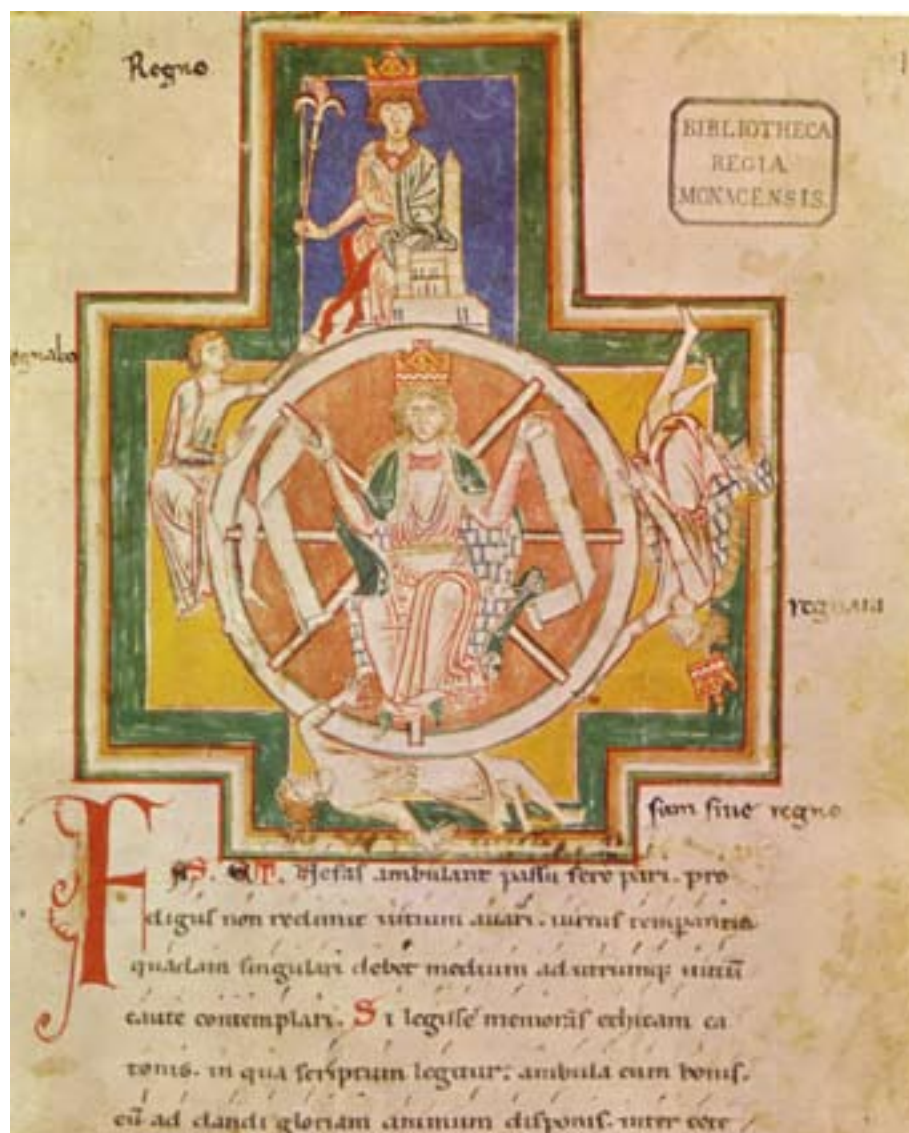 Regno
BIBLIOTHECA
REGIA
MONACENSIS.
egnabo
regnaui
sum sine regno
FAS. ET. Nefas ambulant passu fere pari. pro
digus non redimit uitium auari. uirtus temperantia
quadam singulari debet medium ad utrumq; uitiū
caute contemplari. Si legisse memoras ethicam ca
tonis. in qua scriptum legitur; ambula cum bonis.
cū ad dandi gloriam animum disponis. inter cete